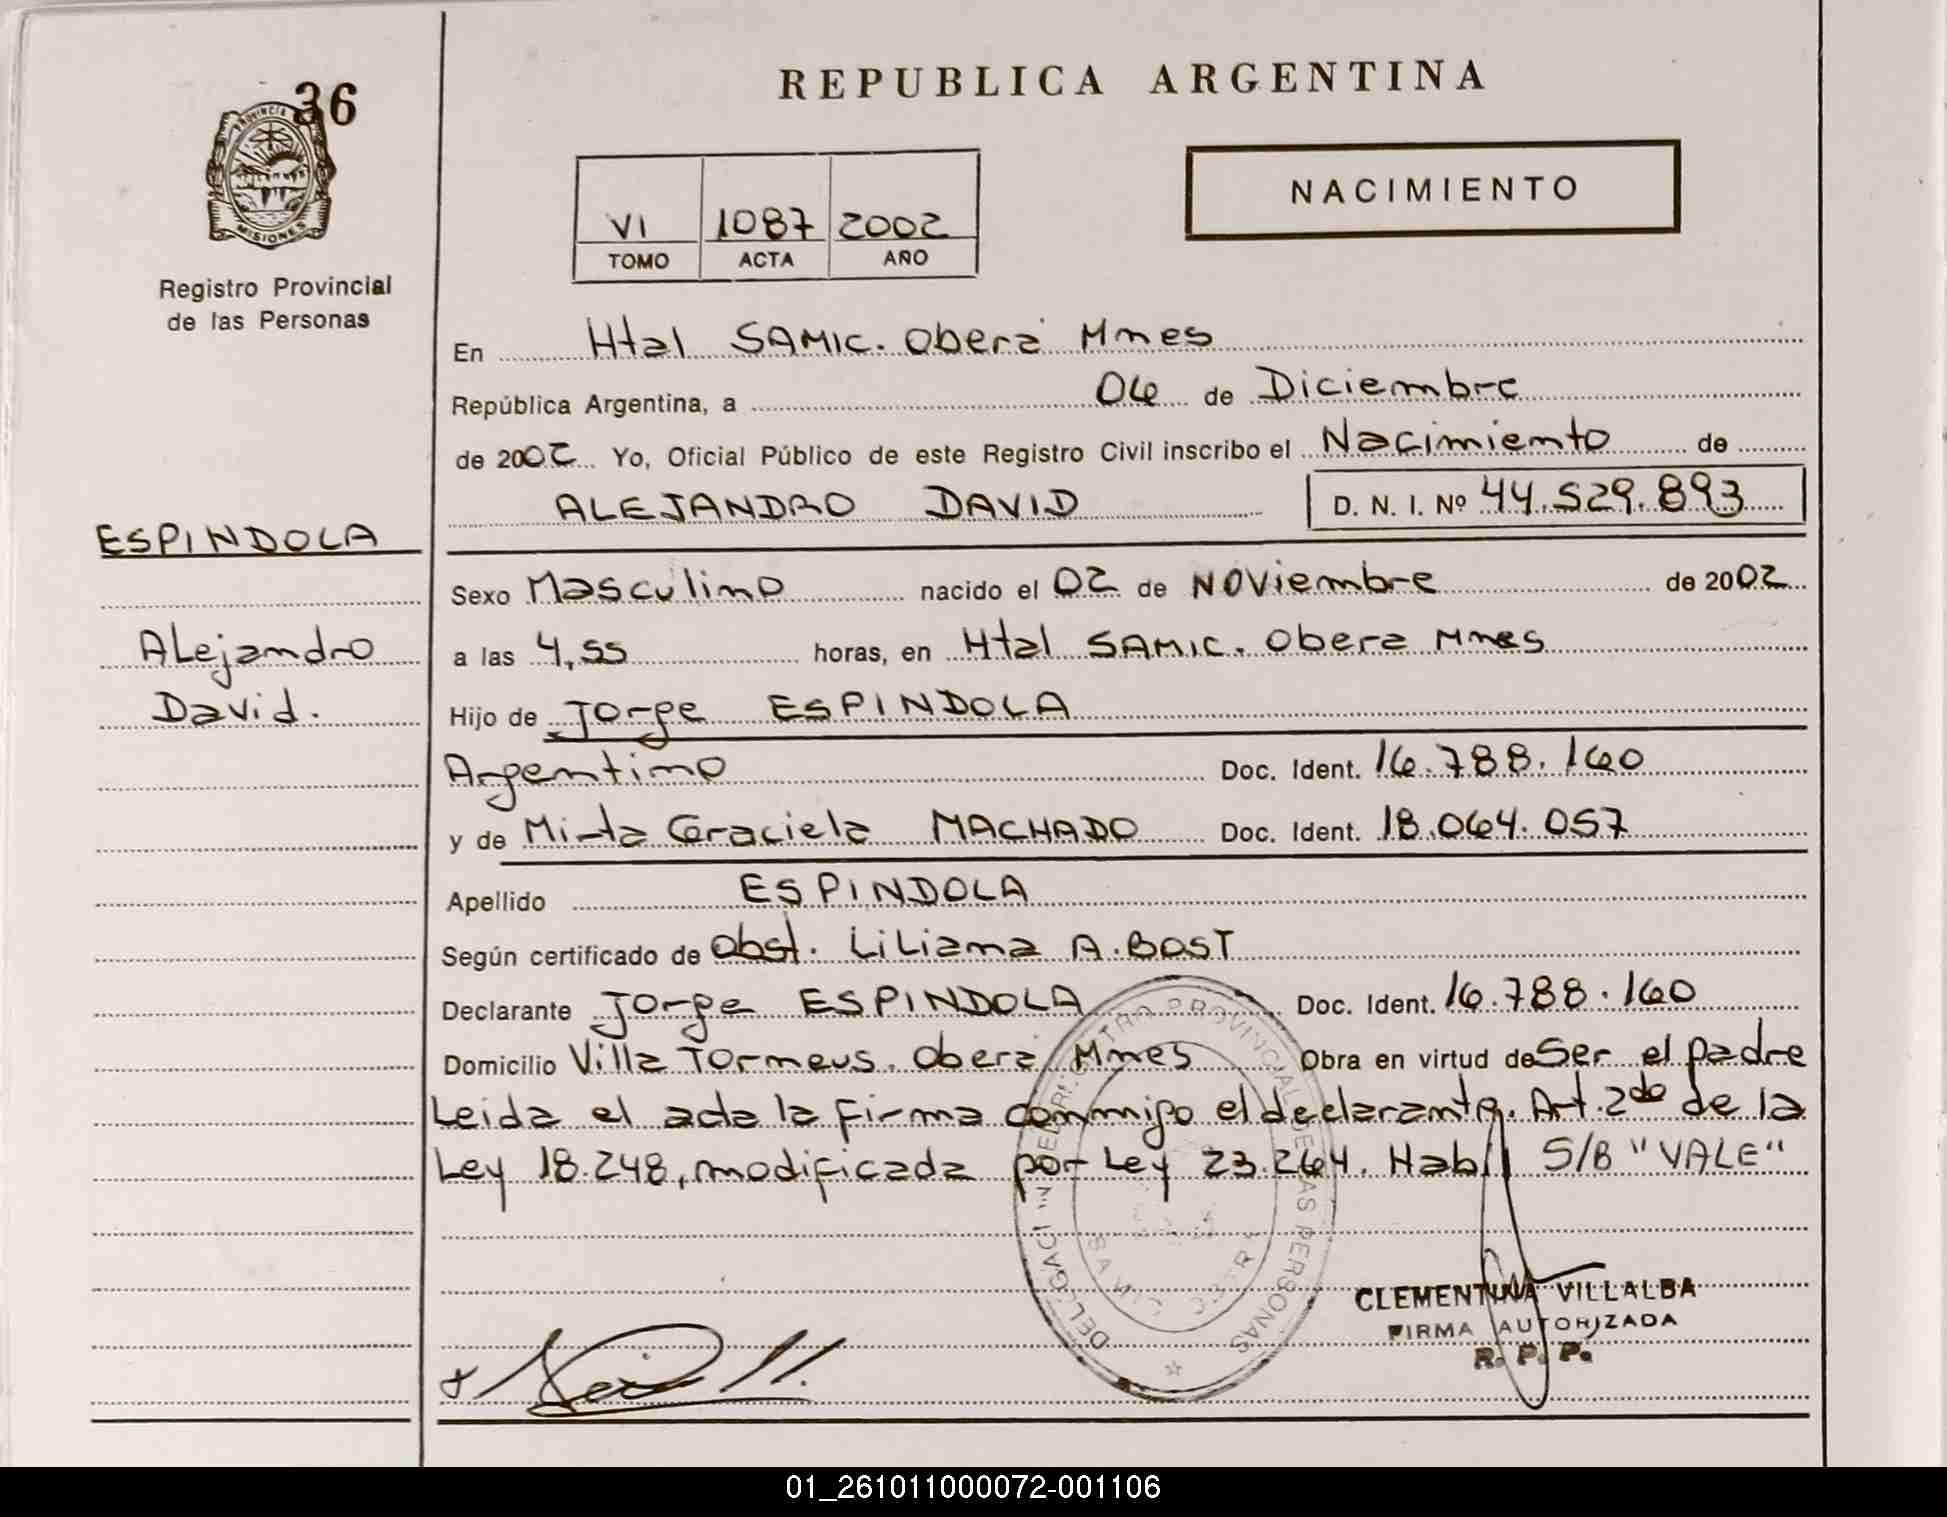 36
PROVINCIA
MISIONES
Registro Provincial
de las Personas
REPUBLICA ARGENTINA
NACIMIENTO
VI 1087 2002
TOMO ACTA AÑO
En Htal SAMIC. Oberá Mnes
República Argentina, a 06 de Diciembre
de 2002 Yo, Oficial Público de este Registro Civil inscribo el Nacimiento de
ALEJANDRO DAVID D. N. I. Nº 44.529.893
ESPINDOLA
Alejandro
David.
Sexo Masculino nacido el 02 de Noviembre de 2002
a las 4,55 horas, en Htal SAMIC. Obera Mnes
Hijo de Jorge ESPINDOLA
Argentino Doc. Ident. 16.788.160
y de Mirta Graciela MACHADO Doc. Ident. 18.064.057
Apellido ESPINDOLA
Según certificado de Obst. Liliana A. BOST
Declarante Jorge ESPINDOLA Doc. Ident. 16.788.160
Domicilio Villa Torneus. Oberá Mnes Obra en virtud de Ser el padre
Leida el acta la firma conmigo el declarante. Art. 2do de la
Ley 18.248, modificada por Ley 23.264. Hab. S/B "VALE"
REGISTRO PROVINCIAL DE LAS PERSONAS
CLEMENTINA VILLALBA
FIRMA AUTORIZADA
R. P. P.
01_261011000072-001106